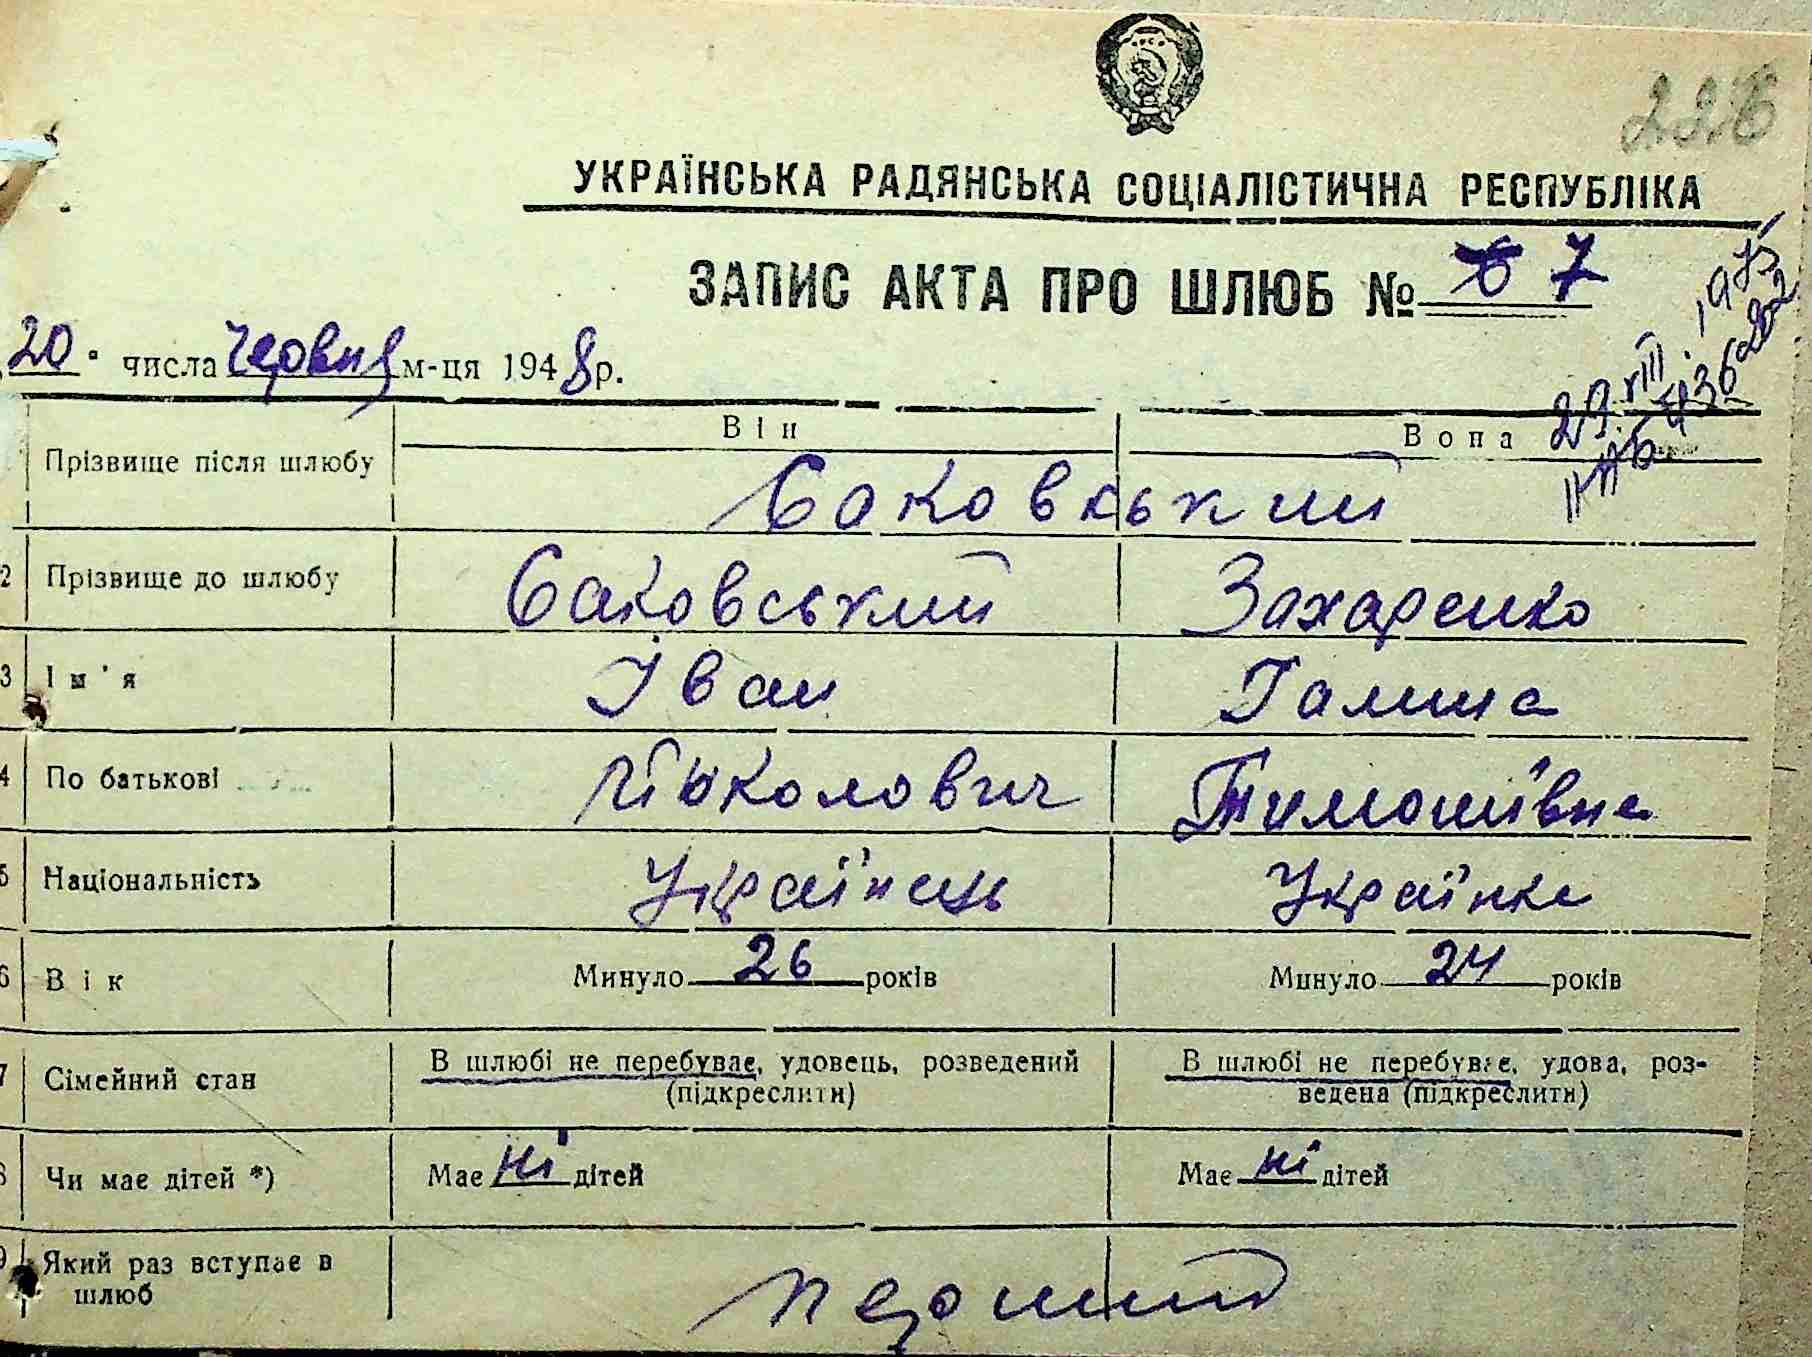 226
УКРАЇНСЬКА РАДЯНСЬКА СОЦІАЛІСТИЧНА РЕСПУБЛІКА
ЗАПИС АКТА ПРО ШЛЮБ № 6 7
20 числа червня м-ця 1948 р.
Він Вона
Прізвище після шлюбу Саковський
2 Прізвище до шлюбу Саковський Захаренко
3 Ім'я Іван Галина
4 По батькові Миколович Тимошівна
5 Національність Українець Українка
6 Вік Минуло 26 років Минуло 24 років
7 Сімейний стан В шлюбі не перебуває, удовець, розведений (підкреслити) В шлюбі не перебуває, удова, роз-
ведена (підкреслити)
8 Чи має дітей *) Має ні дітей Має ні дітей
9 Який раз вступає в
шлюб перший